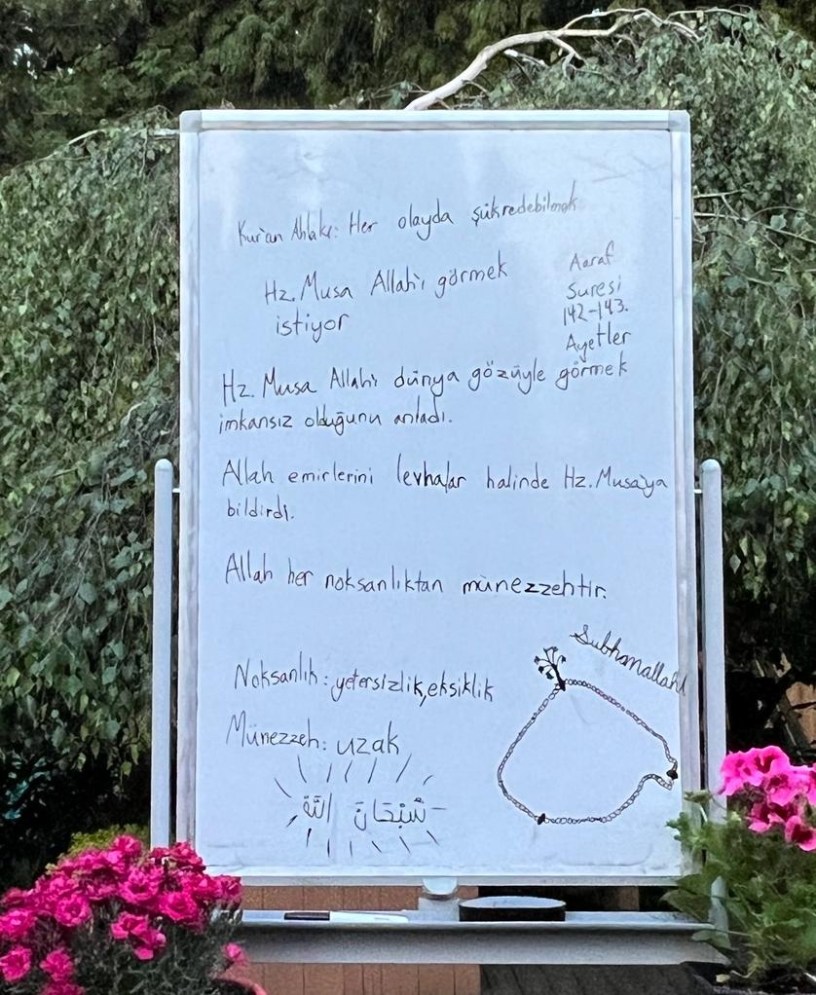 Kur'an Ahlakı: Her olayda şükredebilmek
Hz. Musa Allah'ı görmek
istiyor
Aaraf
Suresi
142-143.
Ayetler
Hz. Musa Allah'ı dünya gözüyle görmek
imkansız olduğunu anladı.
Allah emirlerini levhalar halinde Hz. Musa'ya
bildirdi.
Allah her noksanlıktan münezzehtir.
Noksanlık: yetersizlik, eksiklik
Münezzeh: uzak
Subhanallahi
سُبْحَانَ اللّٰهِ